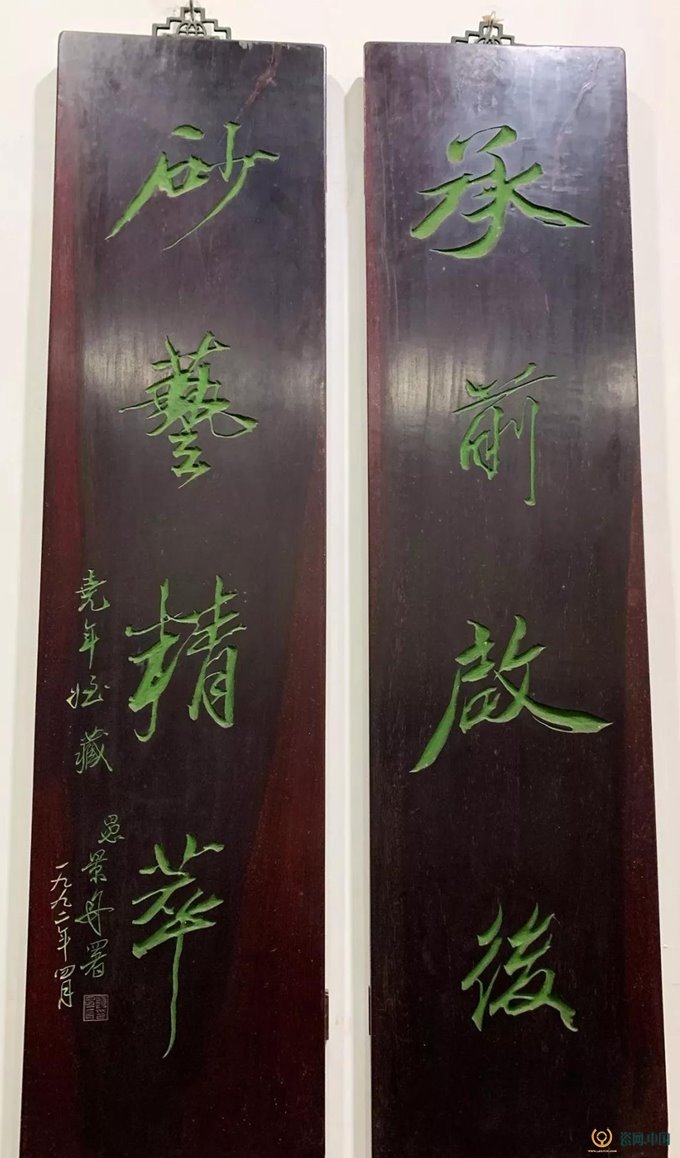 承前啟後
砂藝精萃
堯年
藏
景舟署
一九九二年四月
瓷网.中国